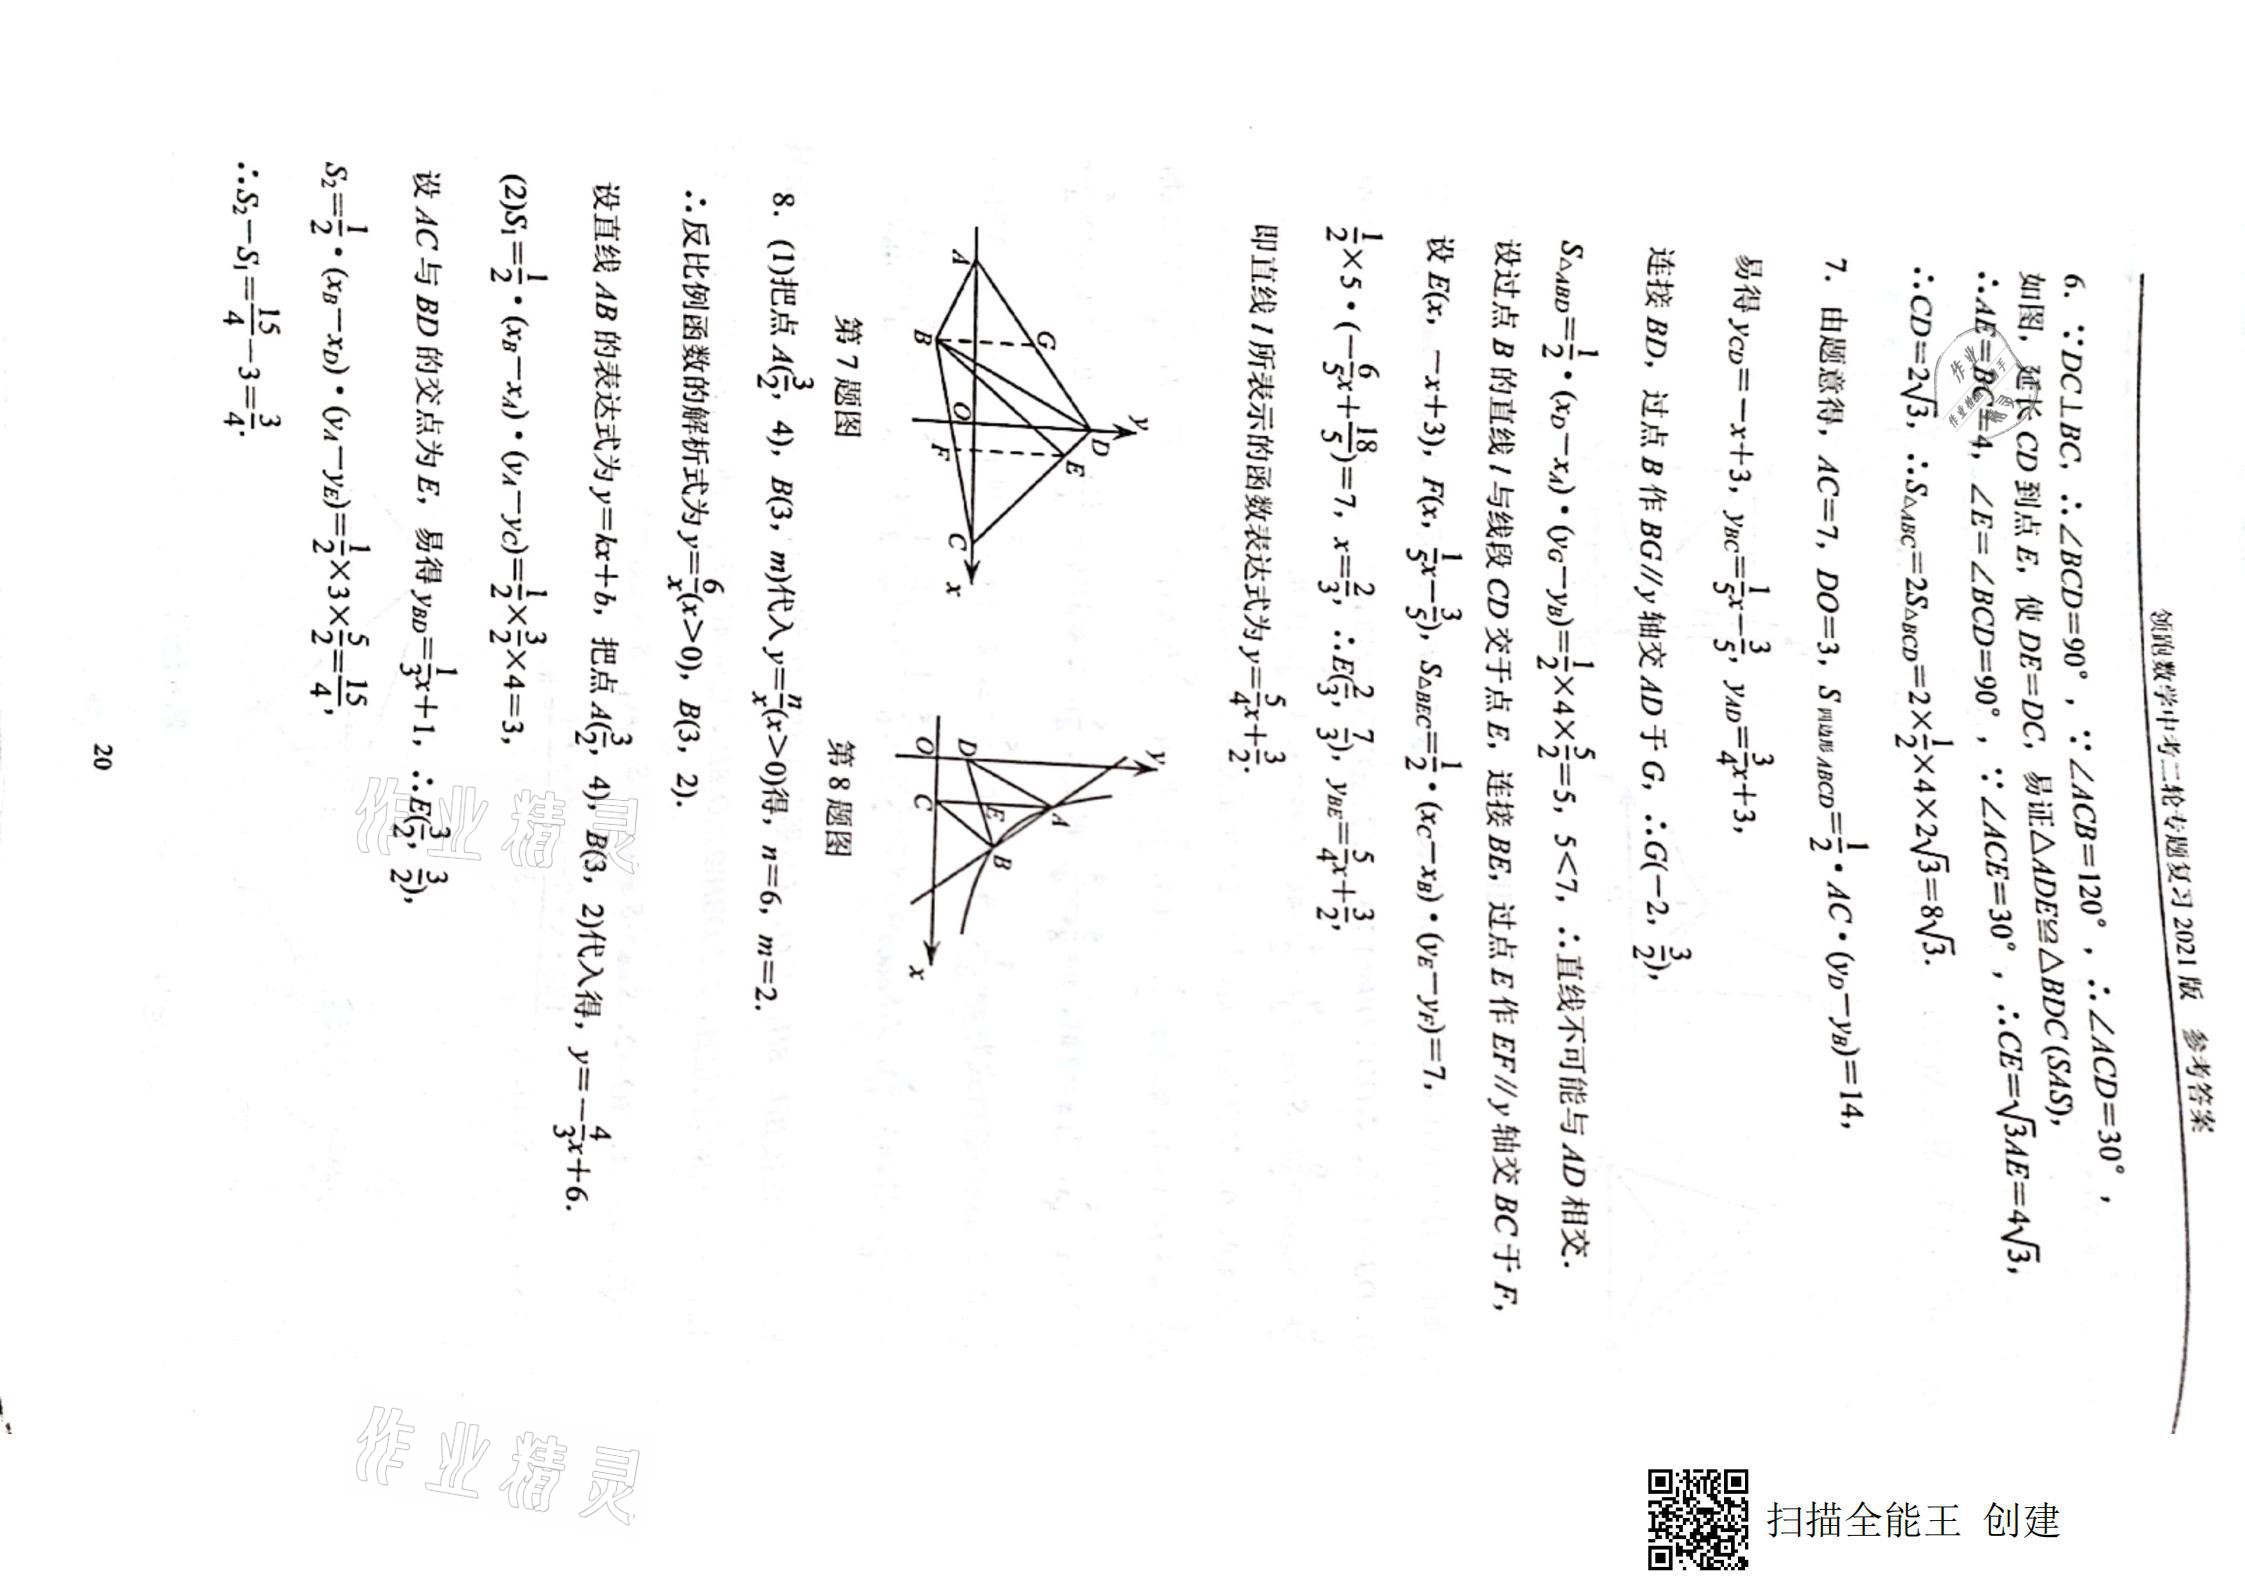 领跑数学中考二轮专题复习 2021 版 参考答案
6. ∵DC⊥BC, ∴∠BCD=90°, ∵∠ACB=120°, ∴∠ACD=30°,
如图, 延长 CD 到点 E, 使 DE=DC, 易证△ADE≌△BDC (SAS),
∴AE=BC=4, ∠E=∠BCD=90°, ∵∠ACE=30°, ∴CE=√3AE=4√3,
∴CD=2√3, ∴S△ABC=2S△BCD=2×1/2×4×2√3=8√3.
7. 由题意得, AC=7, DO=3, S四边形ABCD=1/2•AC•(yD-yB)=14,
易得 yCD=-x+3, yBC=1/5x-3/5, yAD=3/4x+3,
连接 BD, 过点 B 作 BG//y 轴交 AD 于 G, ∴G(-2, 3/2),
S△ABD=1/2•(xD-xA)•(yG-yB)=1/2×4×5/2=5, 5<7, ∴直线不可能与 AD 相交.
设过点 B 的直线 l 与线段 CD 交于点 E, 连接 BE, 过点 E 作 EF//y 轴交 BC 于 F,
设 E(x, -x+3), F(x, 1/5x-3/5), S△BEC=1/2•(xC-xB)•(yE-yF)=7,
1/2×5•(-6/5x+18/5)=7, x=2/3, ∴E(2/3, 7/3), yBE=5/4x+3/2,
即直线 l 所表示的函数表达式为 y=5/4x+3/2.
y
D
G
E
A
O
C
x
B
F
第 7 题图
y
A
D
E
B
O
C
x
第 8 题图
8. (1)把点 A(3/2, 4), B(3, m)代入 y=n/x(x>0)得, n=6, m=2.
∴反比例函数的解析式为 y=6/x(x>0), B(3, 2).
设直线 AB 的表达式为 y=kx+b, 把点 A(3/2, 4), B(3, 2)代入得, y=-4/3x+6.
(2)S1=1/2•(xB-xA)•(yA-yC)=1/2×3/2×4=3,
设 AC 与 BD 的交点为 E, 易得 yBD=1/3x+1, ∴E(3/2, 3/2),
S2=1/2•(xB-xD)•(yA-yE)=1/2×3×5/2=15/4,
∴S2-S1=15/4-3=3/4.
20
作业精灵
作业精灵
扫描全能王 创建